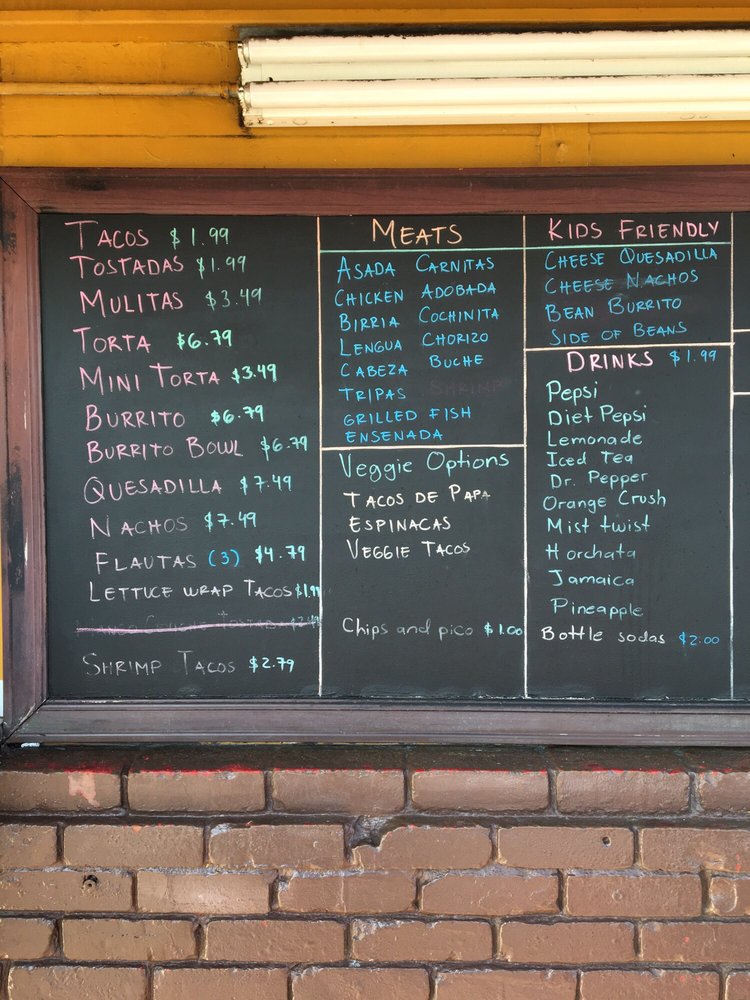 TACOS $1.99
TOSTADAS $1.99
MULITAS $3.49
TORTA $6.79
MINI TORTA $3.49
BURRITO $6.79
BURRITO BOWL $6.79
QUESADILLA $7.49
NACHOS $7.49
FLAUTAS (3) $4.79
LETTUCE WRAP TACOS $1.99
SHRIMP TACOS $2.79
MEATS
ASADA CARNITAS
CHICKEN ADOBADA
BIRRIA COCHINITA
LENGUA CHORIZO
CABEZA BUCHE
TRIPAS SHRIMP
GRILLED FISH
ENSENADA
Veggie Options
TACOS DE PAPA
ESPINACAS
VEGGIE TACOS
Chips and pico $1.00
KIDS FRIENDLY
CHEESE QUESADILLA
CHEESE NACHOS
BEAN BURRITO
SIDE OF BEANS
DRINKS $1.99
Pepsi
Diet Pepsi
Lemonade
Iced Tea
Dr. Pepper
Orange Crush
Mist twist
Horchata
Jamaica
Pineapple
Bottle sodas $2.00